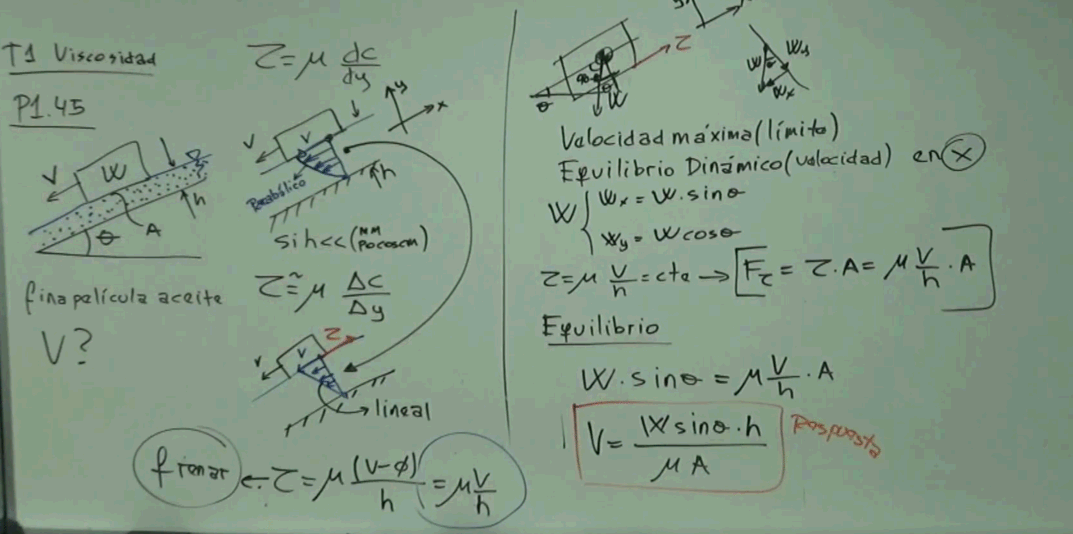 T1 Viscosidad
P1.45
V
W
h
θ
A
fina película aceite
V?
τ = μ dc/dy
y
x
V
V
h
Parabólico
si h<< (mm pocos cm)
τ ≈ μ Δc/Δy
τ
V
V
lineal
frenar ← τ = μ (V-ø)/h = μ V/h
y
τ
θ
W
W
Wy
Wx
Velocidad máxima (límite)
Equilibrio Dinámico (velocidad) en x
W { Wx = W·sinθ
Wy = W cosθ
τ = μ V/h = cte → Fτ = τ.A = μ V/h · A
Equilibrio
W·sinθ = μ V/h · A
V = W sinθ·h / μ A
Respuesta